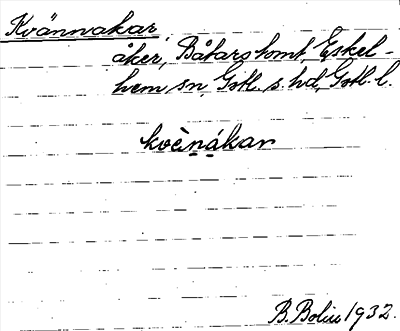 Kvännakar
åker, Båtarstomt, Eskel-
hem sn, Gotl. s. hd, Gotl. l.
kvènákar
B. Bolin 1932.